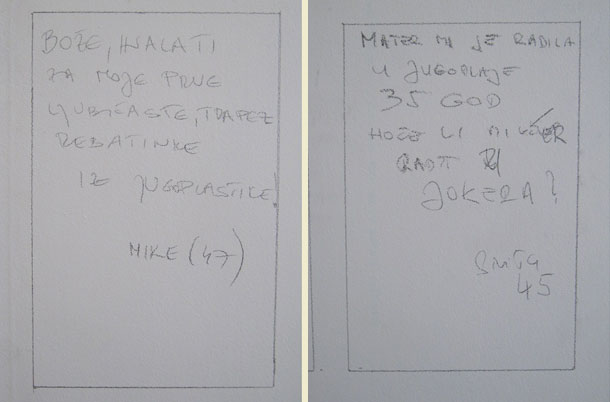 BOŽE, HVALA TI
ZA MOJE PRVE
LJUBIČASTE, TRAPEZ
REBATINKE
IZ JUGOPLASTIKE
MIKE (47)
MATER MI JE RADILA
U JUGOPLAJE
35 GOD
HOĆE LI MI KĆER
RADIT
JOKERA?
SINIŠA
45